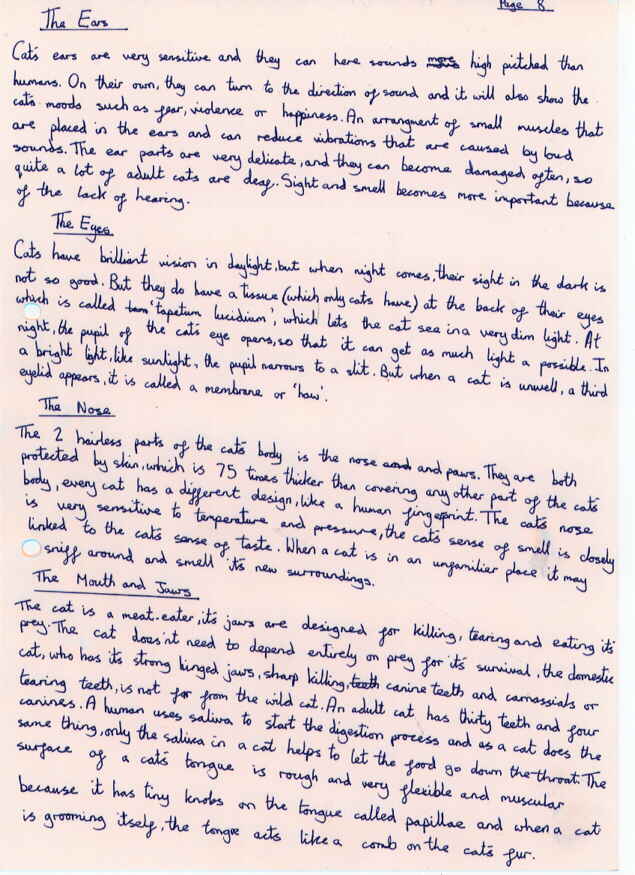 Page 8
The Ears
Cat's ears are very sensitive and they can here sounds more high pictched than
humans. On their own, they can turn to the direction of sound and it will also show the
cat's moods such as fear, violence or happiness. An arrangment of small muscles that
are placed in the ears and can reduce vibrations that are caused by loud
sounds. The ear parts are very delicate, and they can become damaged often, so
quite a lot of adult cats are deaf. Sight and smell becomes more important because
of the lack of hearing.
The Eyes
Cats have brilliant vision in daylight, but when night comes, their sight in the dark is
not so good. But they do have a tissue (which only cats have) at the back of their eyes
which is called 'tapetum lucidium', which lets the cat see in a very dim light. At
night, the pupil of the cat's eye opens, so that it can get as much light a possible. In
a bright light, like sunlight, the pupil narrows to a slit. But when a cat is unwell, a third
eyelid appears, it is called a membrane or 'haw'.
The Nose
The 2 hairless parts of the cat's body is the nose and and paws. They are both
protected by skin, which is 75 times thicker than covering any other part of the cat's
body, every cat has a different design, like a human fingerprint. The cat's nose
is very sensitive to temperature and pressure, the cat's sense of smell is closely
linked to the cats sense of taste. When a cat is in an unfamilier place it may
sniff around and smell it's new surroundings.
The Mouth and Jaws
The cat is a meat-eater, it's jaws are designed for killing, tearing and eating it's
prey. The cat does'nt need to depend entirely on prey for it's survival, the domestic
cat, who has its strong hinged jaws, sharp killing, teeth canine teeth and carnassials or
tearing teeth, is not far from the wild cat. An adult cat has thirty teeth and four
canines. A human uses saliva to start the digestion process and as a cat does the
same thing, only the saliva in a cat helps to let the food go down the throat. The
surface of a cat's tongue is rough and very flexible and muscular
because it has tiny knobs on the tongue called papillae and when a cat
is grooming itself, the tongue acts like a comb on the cat's fur.